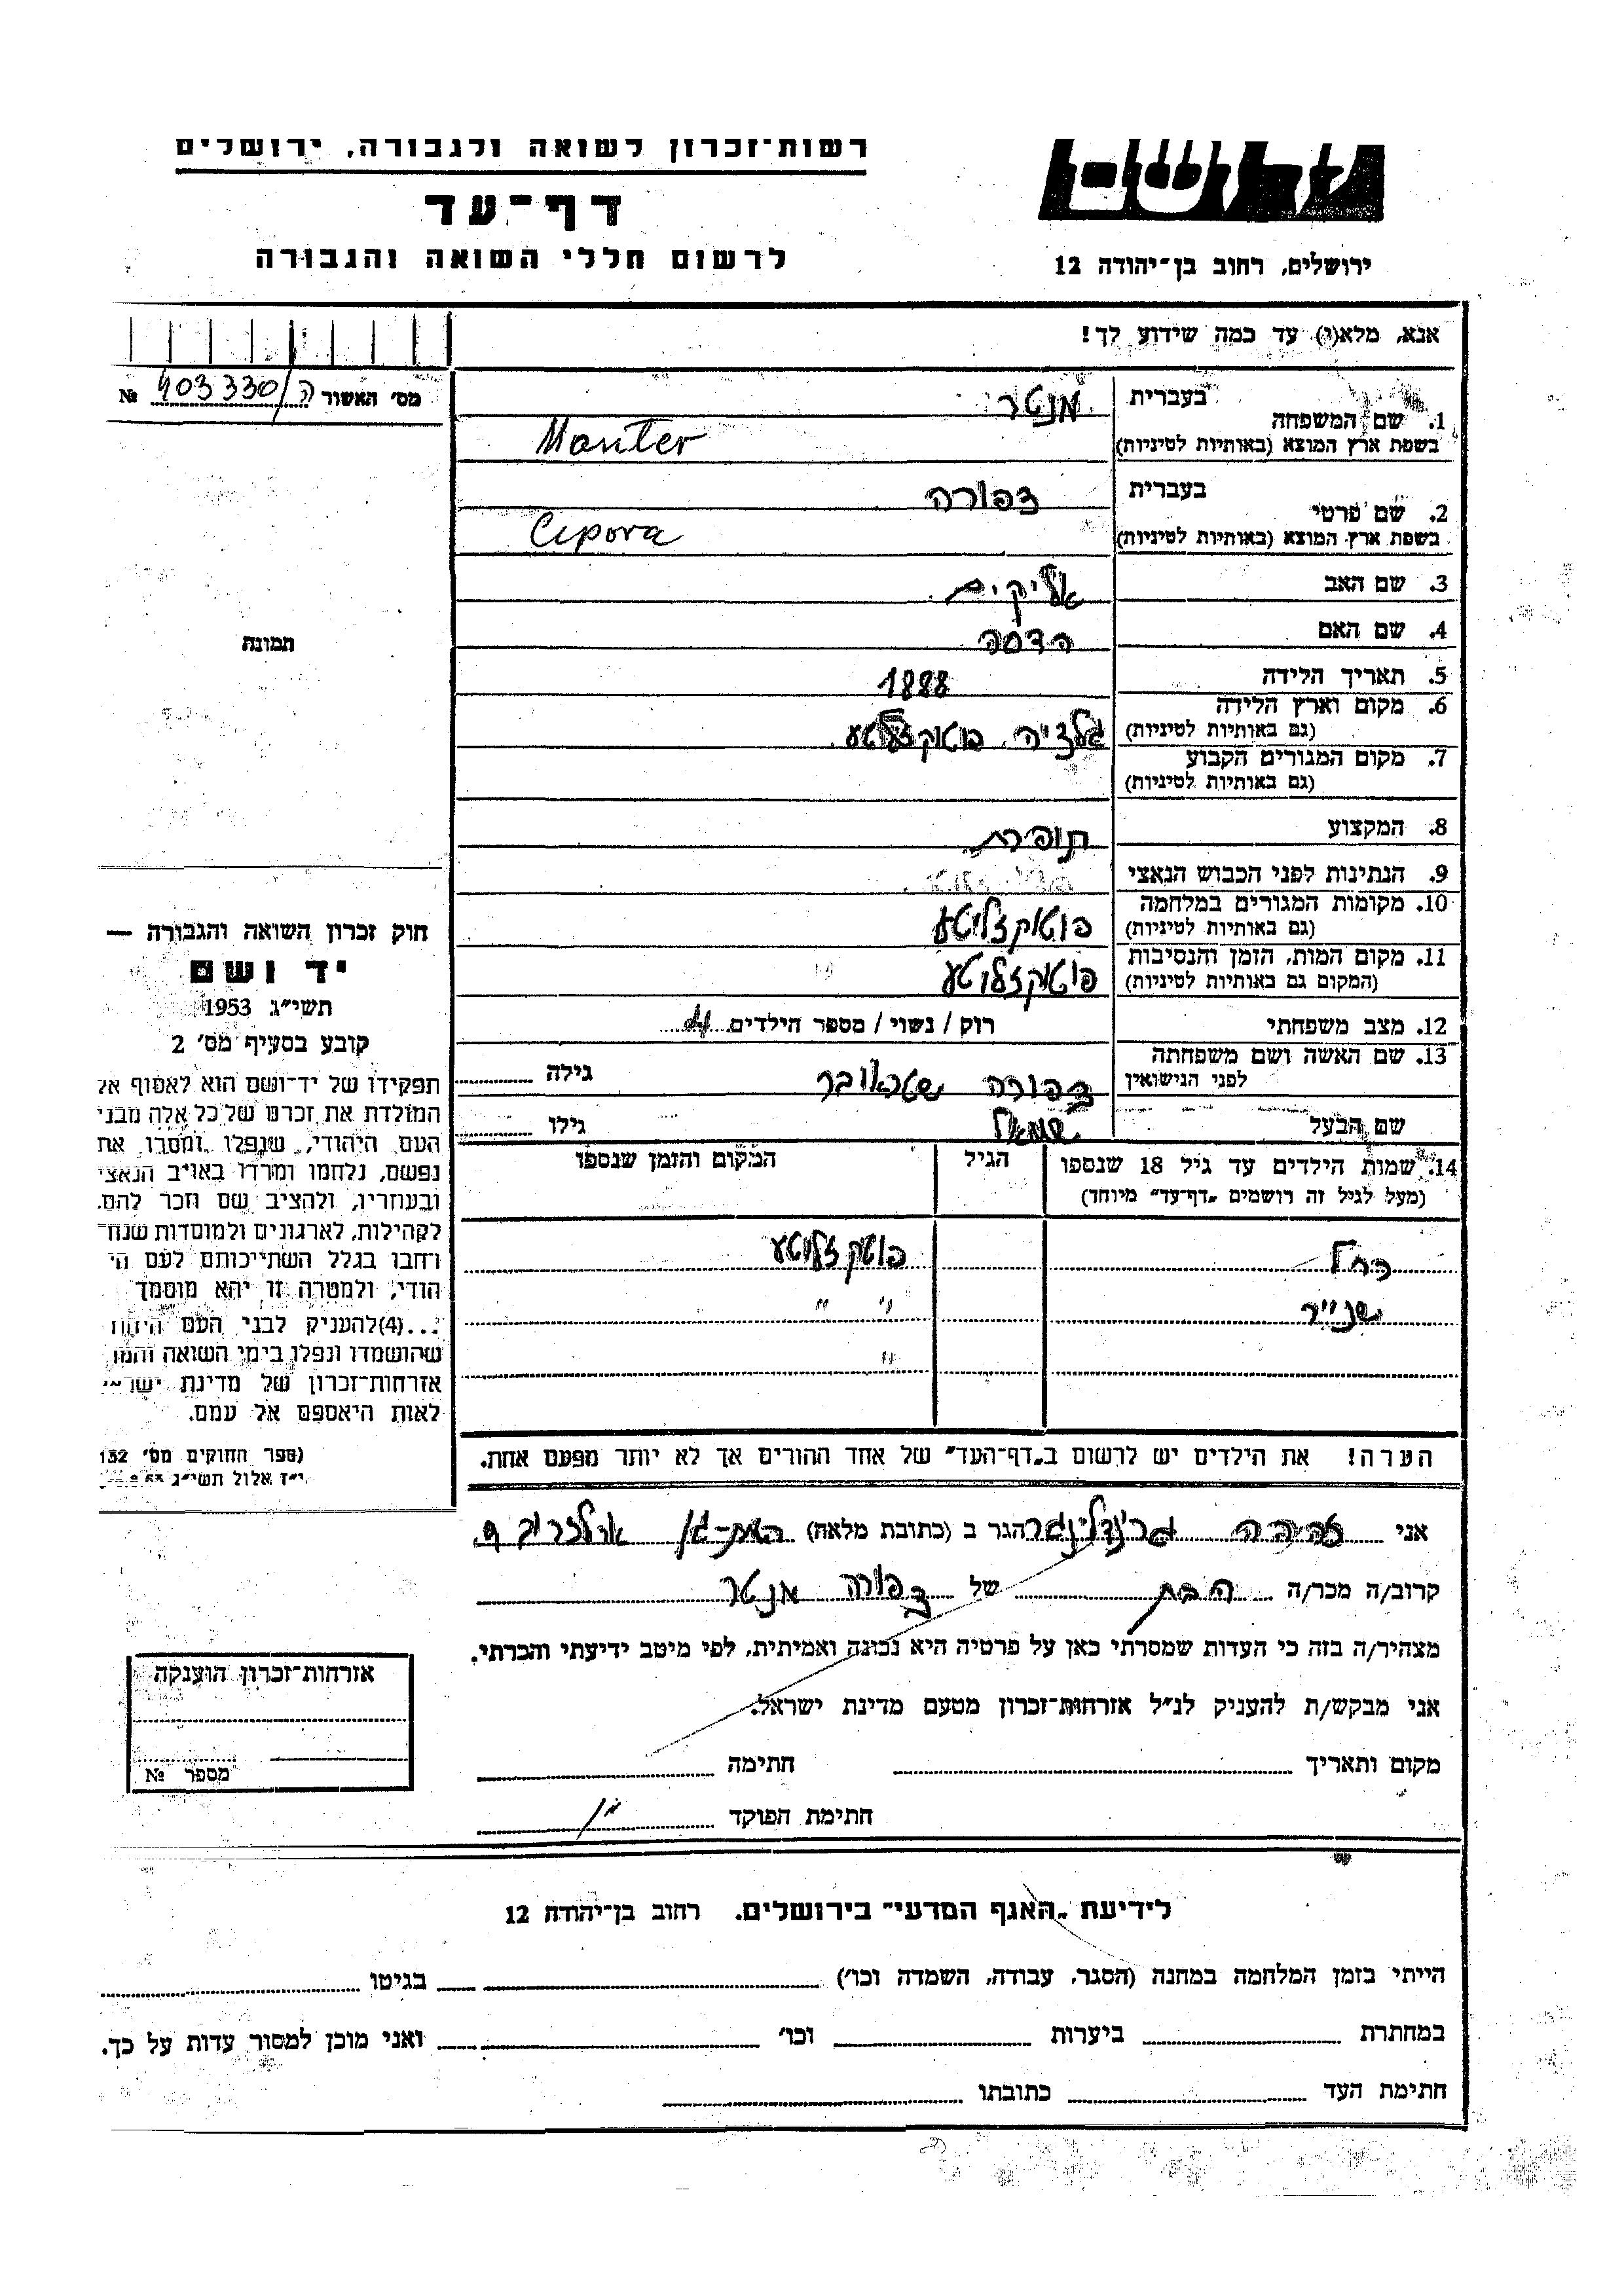 רשות־זכרון לשואה ולגבורה, ירושלים
דף־עד
לרשום חללי השואה והגבורה
ירושלים, רחוב בן־יהודה 12
אנא, מלא(י) עד כמה שידוע לך!
מס׳ האשור ה/403330 №
1. שם המשפחה
בעברית מנטר
בשפת ארץ המוצא (באותיות לטיניות) Manter
2. שם פרטי
בעברית צפורה
בשפת ארץ המוצא (באותיות לטיניות) Cipora
3. שם האב אליקים
4. שם האם הדסה
5. תאריך הלידה 1888
6. מקום וארץ הלידה
(גם באותיות לטיניות) גלציה פוטוק זלוטע
7. מקום המגורים הקבוע
(גם באותיות לטיניות)
8. המקצוע תופרת
9. הנתינות לפני הכבוש הנאצי
10. מקומות המגורים במלחמה
(גם באותיות לטיניות) פוטוק זלוטע
11. מקום המות, הזמן והנסיבות
(המקום גם באותיות לטיניות) פוטוק זלוטע
12. מצב משפחתי רוק / נשוי / מספר הילדים 4
13. שם האשה ושם משפחתה
לפני הנישואין צפורה שטראובר גילה
שם הבעל שמואל גילו
14. שמות הילדים עד גיל 18 שנספו הגיל המקום והזמן שנספו
(מעל לגיל זה רושמים „דף־עד״ מיוחד)
רחל פוטק זלוטע
שנייר " "
"
הערה! את הילדים יש לרשום ב„דף־העד״ של אחד ההורים אך לא יותר מפעם אחת.
תמונה
חוק זכרון השואה והגבורה —
יד ושם
תשי״ג 1953
קובע בסעיף מס׳ 2
תפקידו של יד־ושם הוא לאסוף אל
המולדת את זכרם של כל אלה מבני
העם היהודי, שנפלו ומסרו את
נפשם, נלחמו ומרדו באויב הנאצי
ובעוזריו, ולהציב שם וזכר להם,
לקהילות, לארגונים ולמוסדות שנח־
רחבו בגלל השתייכותם לעם הי
הודי, ולמטרה זו יהא מוסמך
...(4)להעניק לבני העם
שהושמדו ונפלו בימי השואה והמר
אזרחות־זכרון של מדינת ישר
לאות היאספם אל עמם.
(ספר החוקים מס׳ 132
י״ז אלול תשי״ג
אני זהבה גרינדלינגר הגר ב (כתובת מלאה) רמת-גן ארלוזרוב
קרוב/ה מכר/ה הבת של צפורה מנטר
מצהיר/ה בזה כי העדות שמסרתי כאן על פרטיה היא נכונה ואמיתית, לפי מיטב ידיעתי והכרתי.
אני מבקש/ת להעניק לנ״ל אזרחות־זכרון מטעם מדינת ישראל.
מקום ותאריך חתימה
חתימת הפוקד
אזרחות־זכרון הוענקה
מספר №
לידיעת „האגף המדעי״ בירושלים, רחוב בן־יהודה 12
הייתי בזמן המלחמה במחנה (הסגר, עבודה, השמדה וכו׳) בגיטו
במחתרת ביערות וכו׳ ואני מוכן למסור עדות על כך.
חתימת העד כתובתו